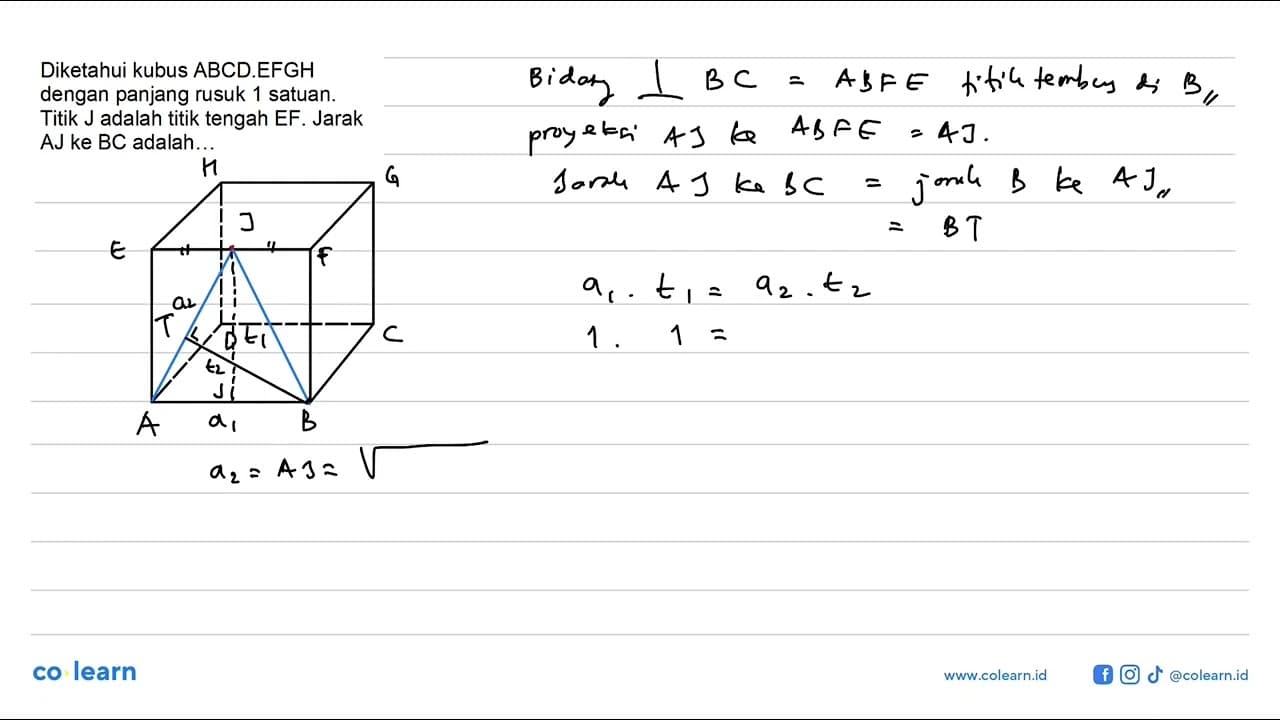 Diketahui kubus ABCD.EFGH
dengan panjang rusuk 1 satuan.
Titik J adalah titik tengah EF. Jarak
AJ ke BC adalah...
Bidang ⊥ BC = ABFE titik tembus di B,,
proyeksi AJ ke ABFE = AJ.
Jarak AJ ke BC = jarak B ke AJ,,
= BT
a1 . t1 = a2 . t2
1 . 1 =
H
G
J
E
"
"
F
a2
T
D
t1
C
t2
A
a1
B
a2 = AJ = √
co learn
www.colearn.id
@colearn.id